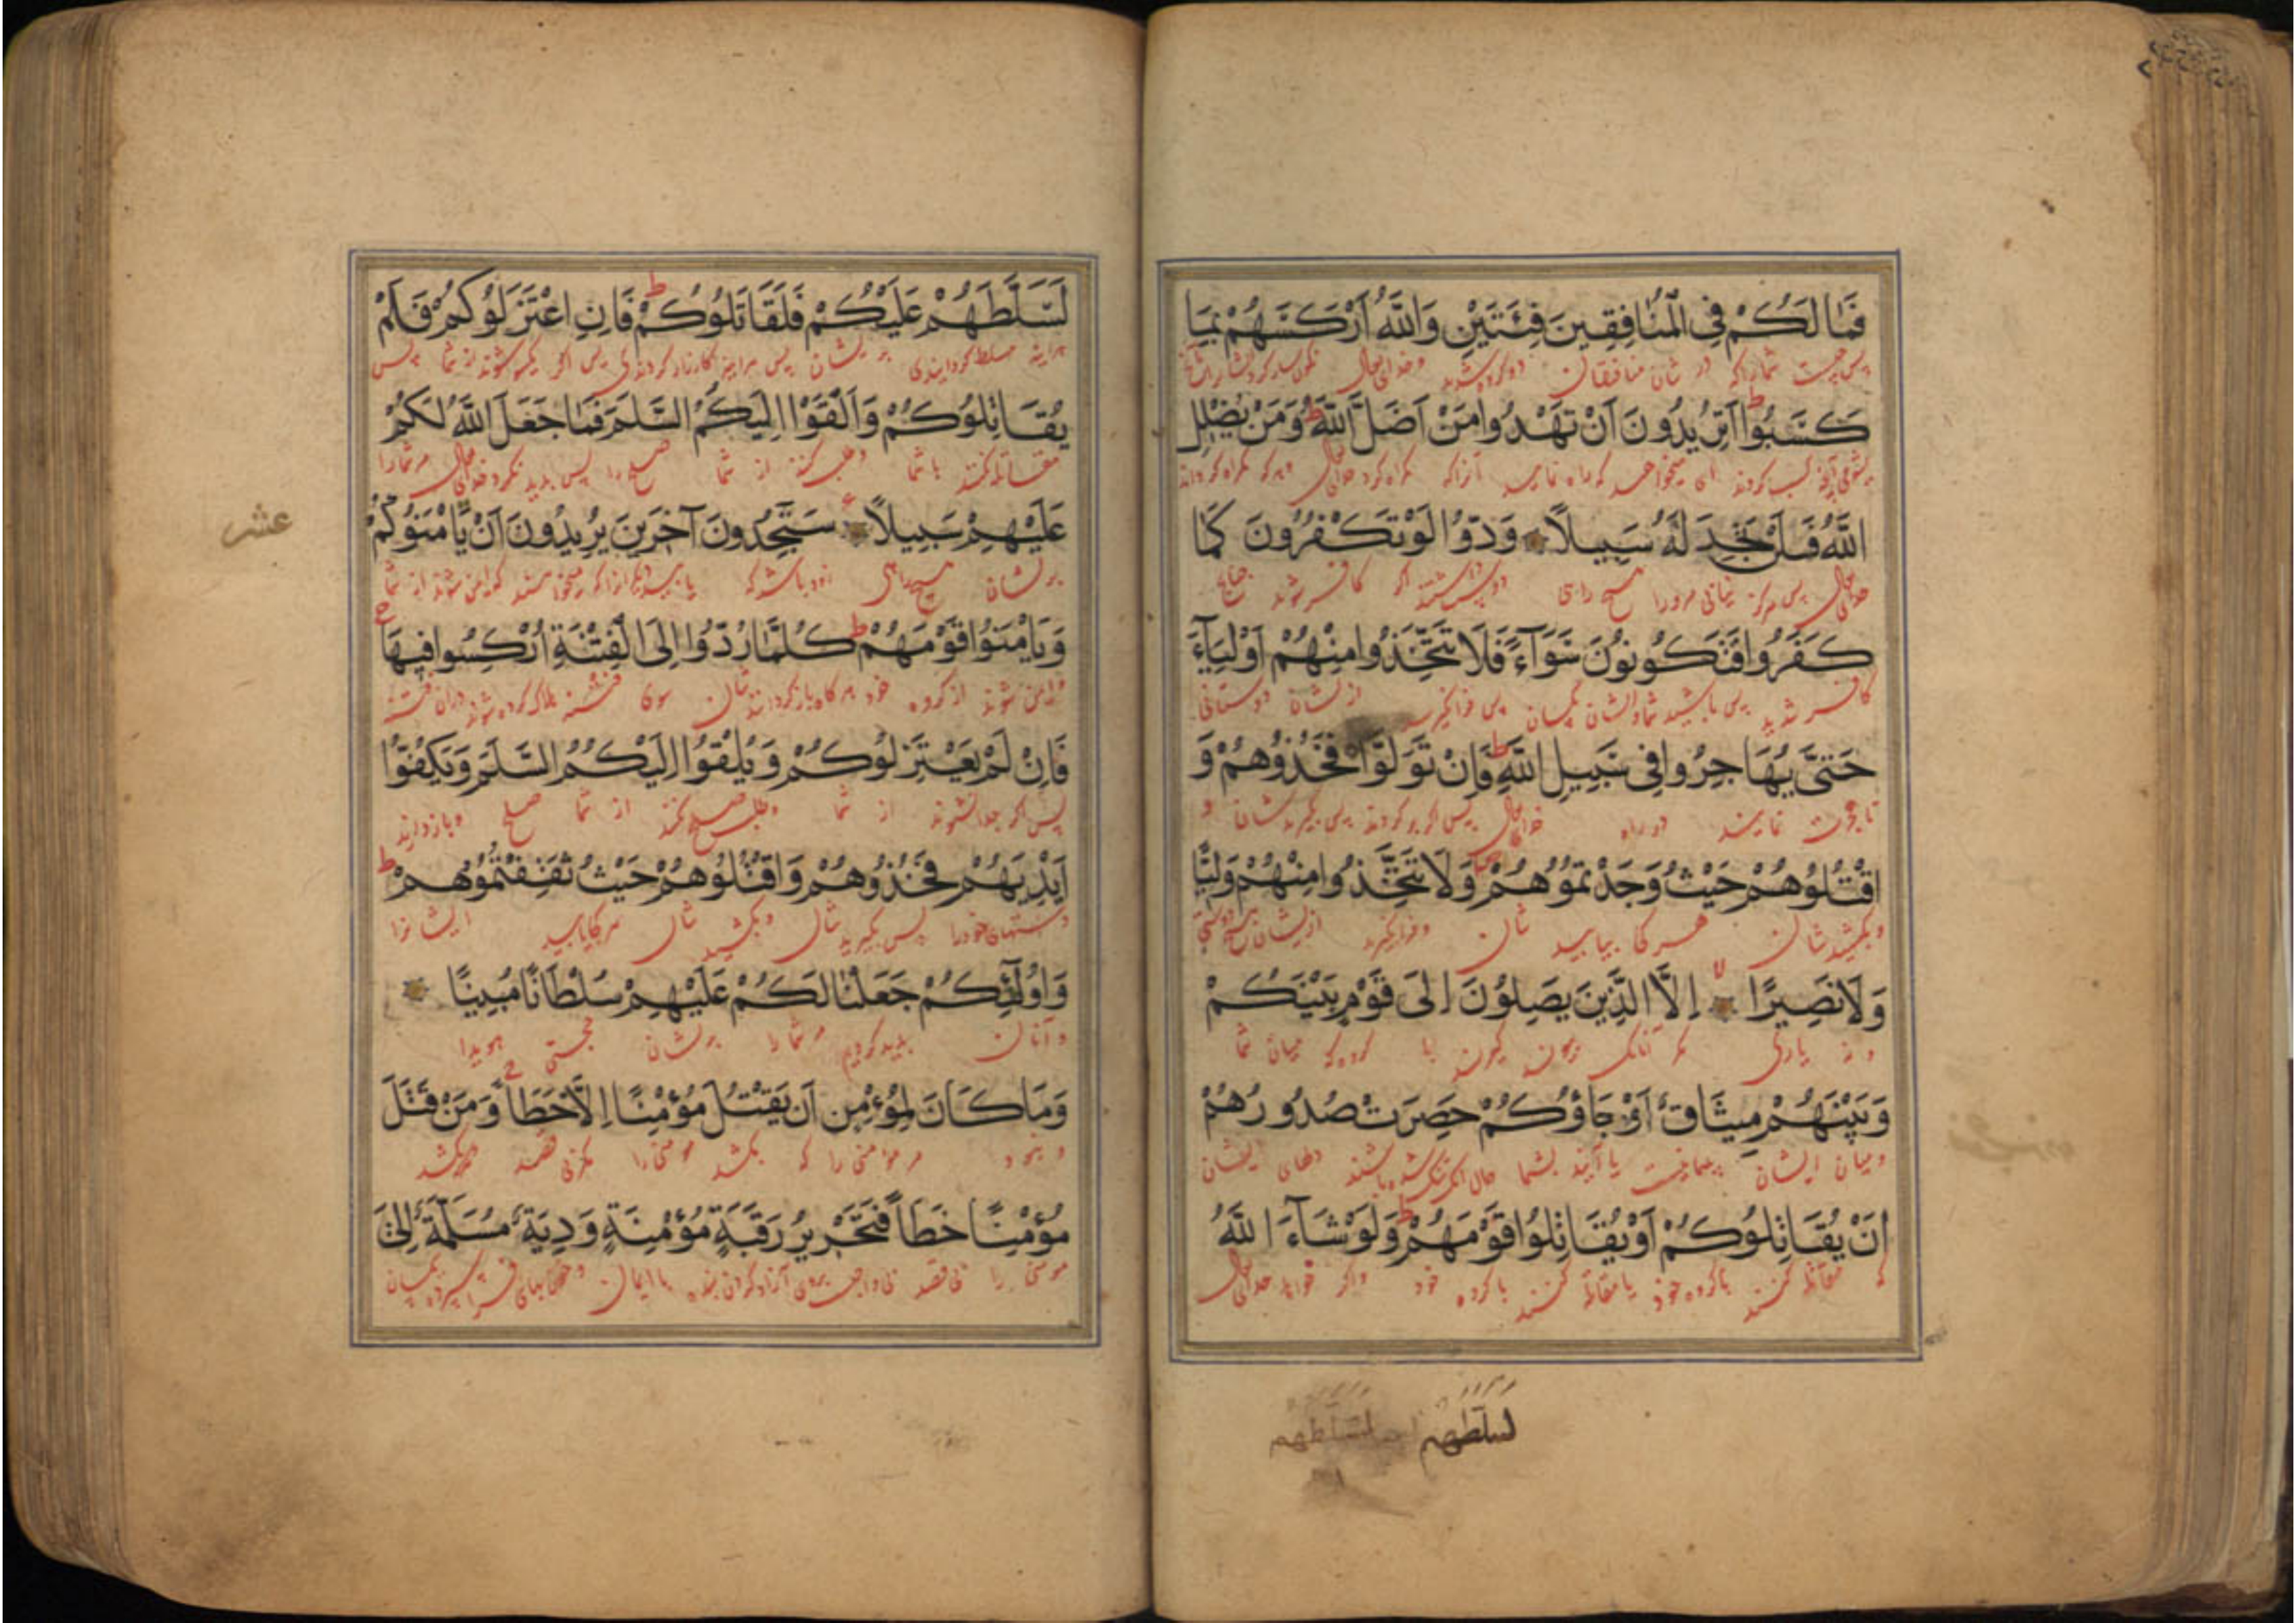 فَمَا لَكُمْ فِي الْمُنَافِقِينَ فِئَتَيْنِ وَاللَّهُ أَرْكَسَهُمْ بِمَا
پس چیست شمارا که در شان منافقان دو گروه شدید وخدای تعالی
كَسَبُوا ط أَتُرِيدُونَ أَنْ تَهْدُوا مَنْ أَضَلَّ اللَّهُ ط وَمَنْ يُضْلِلِ
کسب کردند ای میخواهید که راه نمایید آنرا که گمراه کرد خدای تعالی وهر که گمراه کرداند
اللَّهُ فَلَنْ تَجِدَ لَهُ سَبِيلًا وَدُّوا لَوْ تَكْفُرُونَ كَمَا
خدای تعالی پس هرگز نیابی مرورا هیچ راهی دوست داشتند که کافر شوید چنانچه
كَفَرُوا فَتَكُونُونَ سَوَآءً فَلَا تَتَّخِذُوا مِنْهُمْ أَوْلِيَآءَ
کافر شدید پس باشید شما وایشان یکسان پس فرا مگیرید از ایشان دوستانی
حَتَّى يُهَاجِرُوا فِي سَبِيلِ اللَّهِ ط فَإِنْ تَوَلَّوْا فَخُذُوهُمْ وَ
تا هجرت نمایند در راه خدای تعالی پس اگر برگردند پس بگیریدشان و
اقْتُلُوهُمْ حَيْثُ وَجَدْتُمُوهُمْ وَلَا تَتَّخِذُوا مِنْهُمْ وَلِيًّا
وبکشیدشان هر کجا بیابید شان وفرا مگیرید از ایشان هیچ دوستی
وَلَا نَصِيرًا لا إِلَّا الَّذِينَ يَصِلُونَ إِلَى قَوْمٍ بَيْنَكُمْ
ونه یاری مگر آنانکه با گروهی که میان شما
وَبَيْنَهُمْ مِيثَاقٌ أَوْ جَاؤُكُمْ حَصِرَتْ صُدُورُهُمْ
ومیان ایشان یا آیند بشما حال آنکه تنگ شده باشند دلهای ایشان
أَنْ يُقَاتِلُوكُمْ أَوْ يُقَاتِلُوا قَوْمَهُمْ ط وَلَوْ شَآءَ اللَّهُ
که مقاتله کنند با گروه خود یا مقاتله کنند با گروه خود واگر خواهد خدای تعالی
لسلطهم لسلطهم
لَسَلَّطَهُمْ عَلَيْكُمْ فَلَقَاتَلُوكُمْ ط فَإِنِ اعْتَزَلُوكُمْ فَلَمْ
هراینه مسلط گردانیدی بر ایشان پس هراینه کارزار کردندی پس اگر یکسو شوند از شما پس
يُقَاتِلُوكُمْ وَأَلْقَوْا إِلَيْكُمُ السَّلَمَ فَمَا جَعَلَ اللَّهُ لَكُمْ
مقاتله نکنند با شما وطلب کنند از شما صلح را پس پدید نکرد خدای تعالی مر شما را
عَلَيْهِمْ سَبِيلًا سَتَجِدُونَ آخَرِينَ يُرِيدُونَ أَنْ يَأْمَنُوكُمْ
عشر
بر ایشان هیچ راهی زود باشد که یابید دیگرانرا که میخواهند که ایمن شوند از شما
وَيَأْمَنُوا قَوْمَهُمْ ط كُلَّمَا رُدُّوا إِلَى الْفِتْنَةِ أُرْكِسُوا فِيهَا ج
وایمن شوند از گروه خود هر گاه باز گردانند شان سوی فتنه هلاک کرده شوند دران فتنه
فَإِنْ لَمْ يَعْتَزِلُوكُمْ وَيُلْقُوا إِلَيْكُمُ السَّلَمَ وَيَكُفُّوا
پس اگر جدا نشوند از شما وطلب صلح نکنند از شما صلح وباز ندارند
أَيْدِيَهُمْ فَخُذُوهُمْ وَاقْتُلُوهُمْ حَيْثُ ثَقِفْتُمُوهُمْ ط
دستهای خود را پس بگیرید شان وبکشید شان هر کجا یابید ایشانرا
وَأُولَئِكُمْ جَعَلْنَا لَكُمْ عَلَيْهِمْ سُلْطَانًا مُبِينًا
وآنان پدید کردیم مر شما را بر ایشان حجتی هویدا
وَمَا كَانَ لِمُؤْمِنٍ أَنْ يَقْتُلَ مُؤْمِنًا إِلَّا خَطَأً ج وَمَنْ قَتَلَ
ونبود مر مؤمنی را که بکشد مؤمنی را مگر بی قصد وهر که بکشد
مُؤْمِنًا خَطَأً فَتَحْرِيرُ رَقَبَةٍ مُؤْمِنَةٍ وَدِيَةٌ مُسَلَّمَةٌ إِلَى
مؤمنی را بی قصد آزاد کردن بنده با ایمان